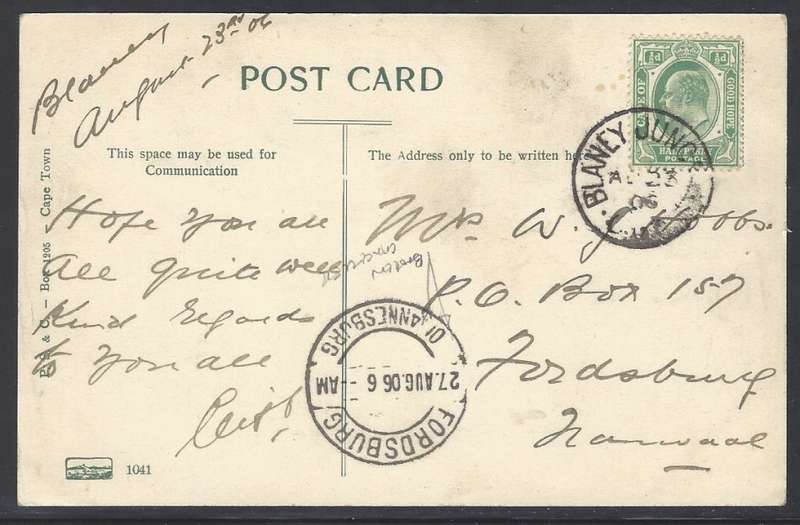 Blaney
August 23rd 06
POST CARD
This space may be used for
Communication
The Address only to be written here
Hope you are
All quite well
Kind Regards
to you all
Mr W. J. Hobbs.
P.O. Box 157
Fordsburg
Transvaal
& Co. – Box 1205 – Cape Town
1041
½d ½d
GOOD HOPE
HALFPENNY
POSTAGE
BLANEY JUNC
AU 23
06
Broken
FORDSBURG
27.AUG.06 6 - AM
JOHANNESBURG